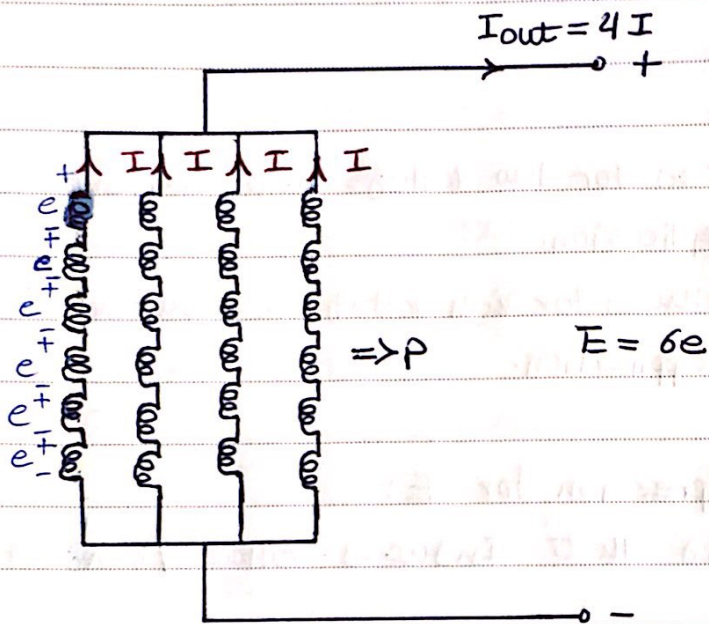 Iout = 4 I
+
+ I I I I
e
- +
e
- +
e
- +
e
- +
e
- +
e
-
=> P
E = 6e
-